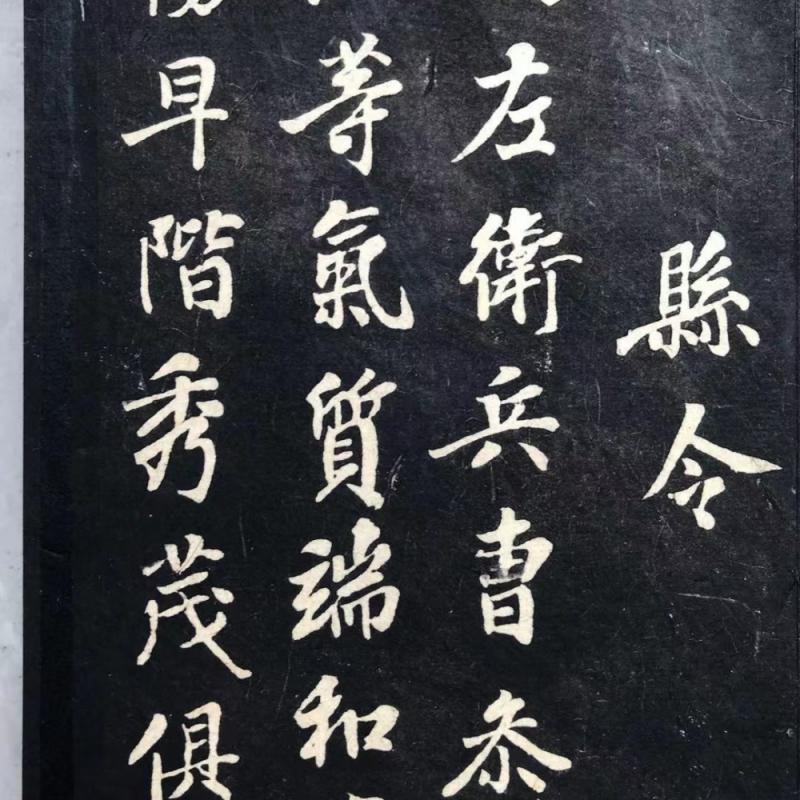 縣令
左衛兵曹參
等氣質端和
早階秀茂俱